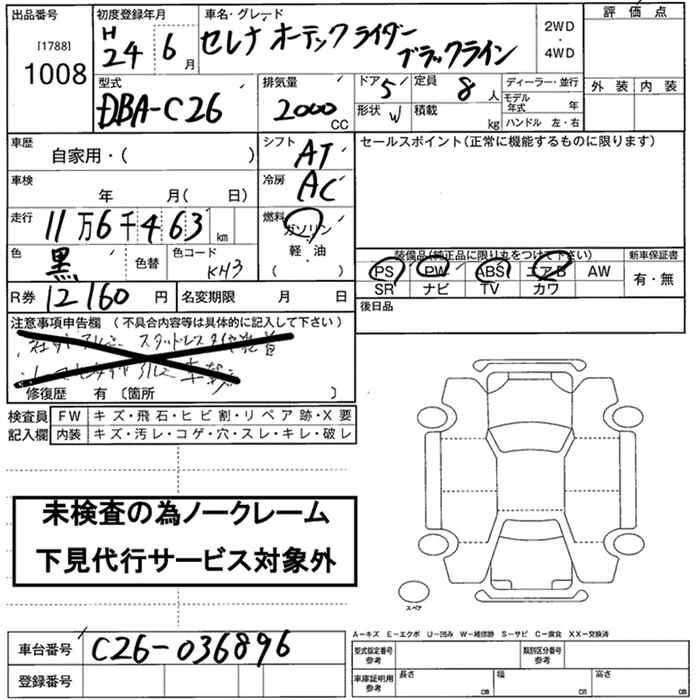 出品番号 初度登録年月 車名・グレード 評価点
[1788] H 24 6月 セレナ オーテック ライダー ブラックライン 2WD・4WD
1008 外装 内装
型式 排気量 ドア 5 定員 8人 ディーラー・並行
DBA-C26 2000 CC 形状 W 積載 kg モデル年式 年
ハンドル 左・右
車歴 シフト セールスポイント(正常に機能するものに限ります)
自家用・( ) AT
車検 年 月( 日) 冷房 AC
走行 11万6千463 km 燃料 ガソリン・軽油・( )
色 黒 色替 色コード KH3
装備品(純正品に限り丸をつけて下さい) 新車保証書
PS PW ABS エアB AW 有・無
SR ナビ TV カワ
R券 12160円 名変期限 月 日 後日品
注意事項申告欄 (不具合内容等は具体的に記入して下さい)
スタッドレス
修復歴 有 〔箇所 〕
検査員 FW キズ・飛石・ヒビ割・リペア跡・X要
記入欄 内装 キズ・汚レ・コゲ・穴・スレ・キレ・破レ
未検査の為ノークレーム
下見代行サービス対象外
スペア
A-キズ E-エクボ U-凹み W-補修跡 S-サビ C-腐食 XX-交換済
車台番号 C26-036896 型式指定番号 参考 類別区分番号 参考
登録番号 車庫証明用 参考 長さ cm 幅 cm 高さ cm